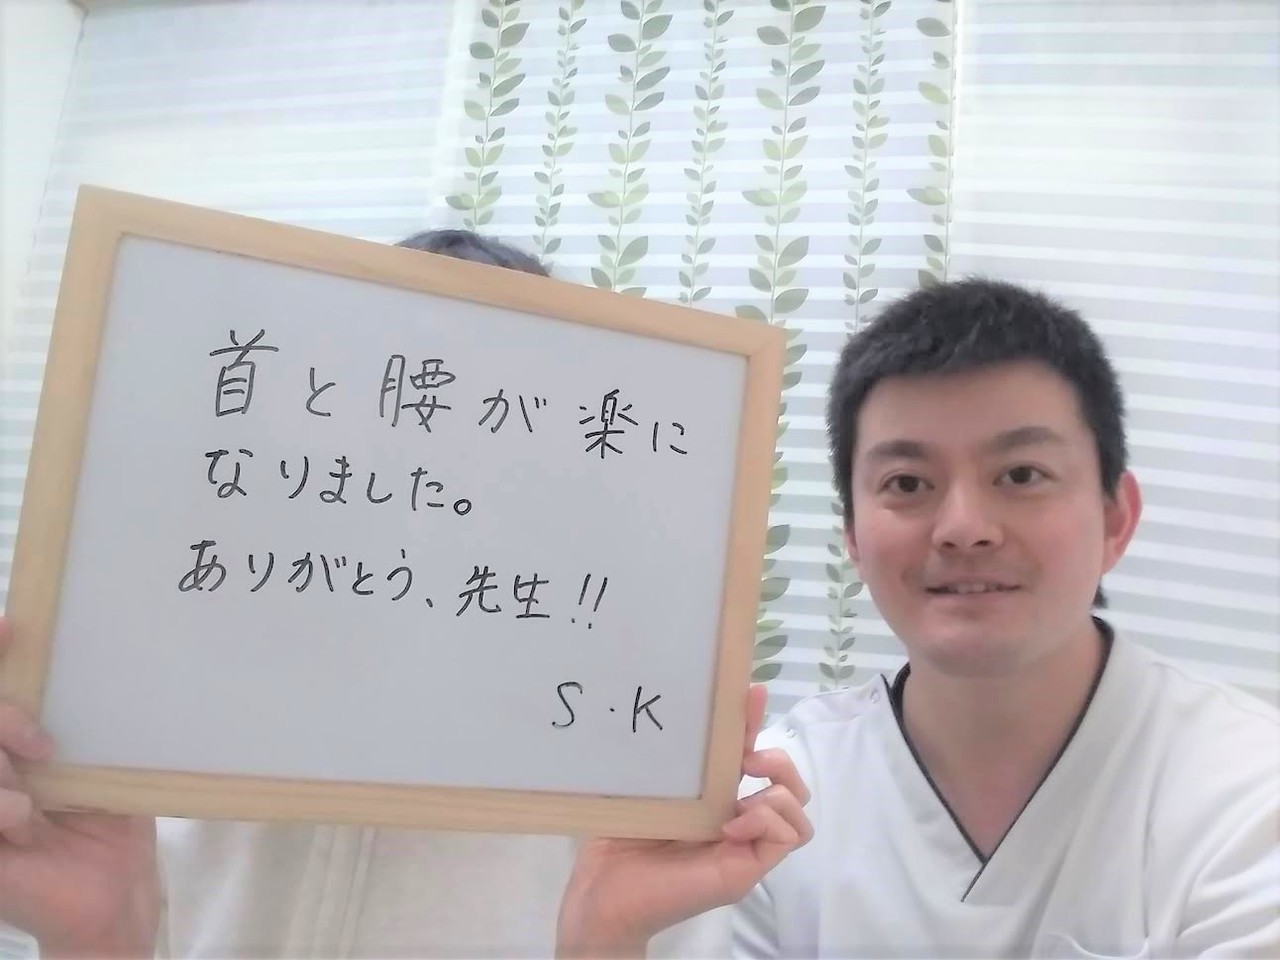 首と腰が楽に
なりました。
ありがとう、先生!!
S・K